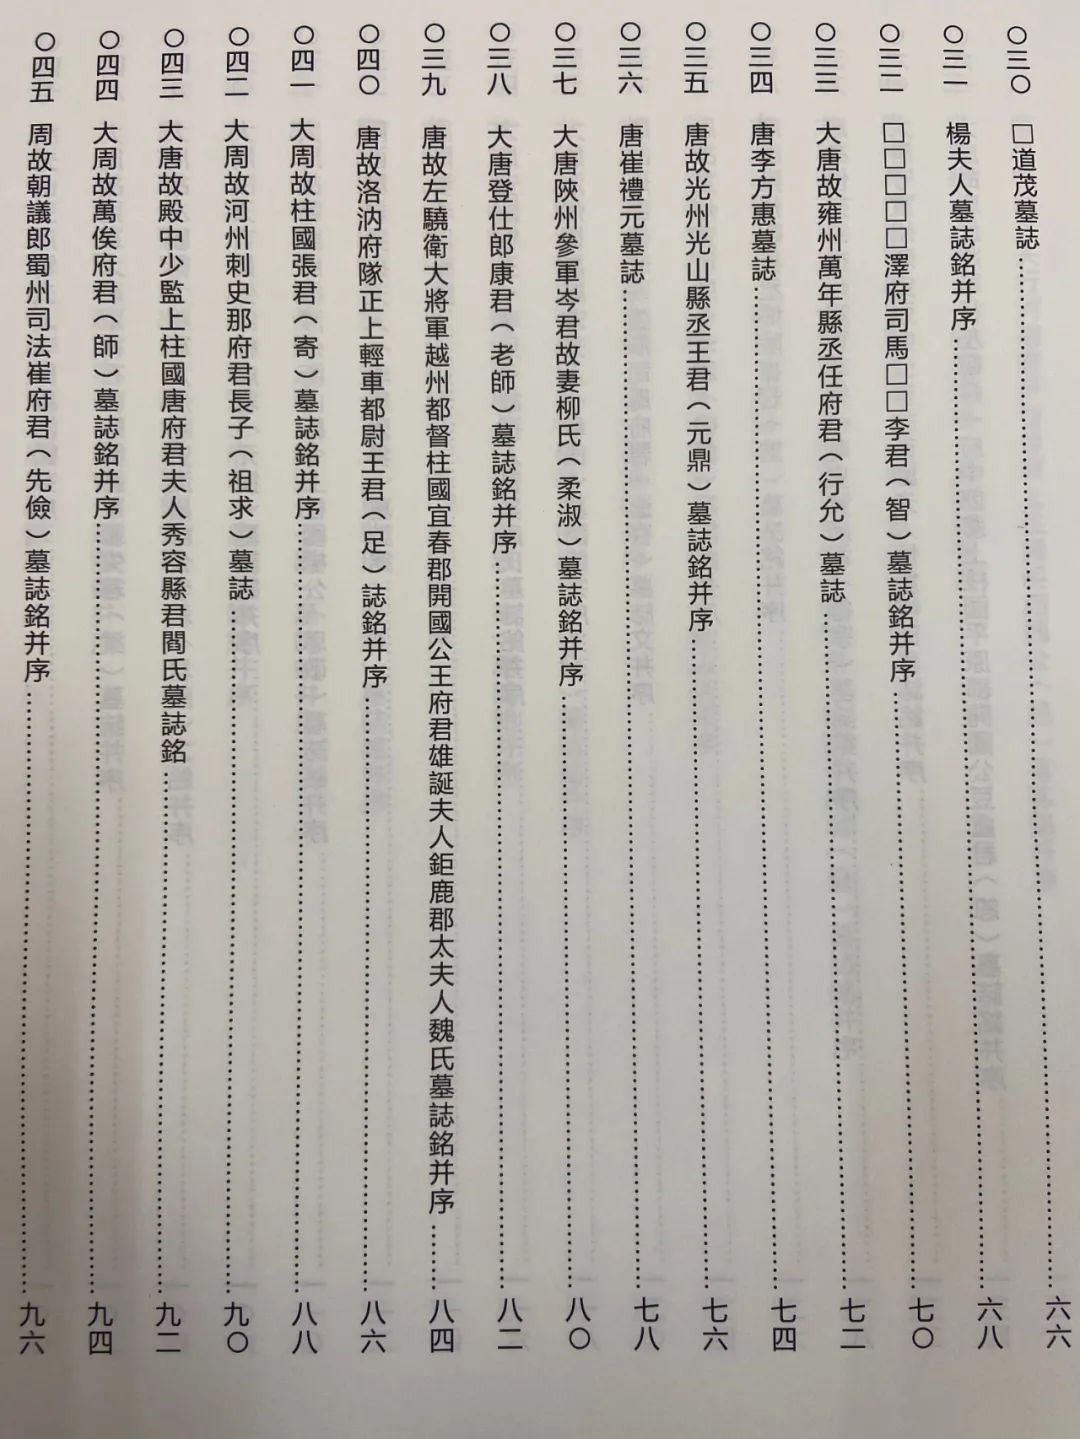 〇三〇 □道茂墓誌……六六
〇三一 楊夫人墓誌銘并序……六八
〇三二 □□□□□澤府司馬□□李君（智）墓誌銘并序……七〇
〇三三 大唐故雍州萬年縣丞任府君（行允）墓誌……七二
〇三四 唐李方惠墓誌……七四
〇三五 唐故光州光山縣丞王君（元鼎）墓誌銘并序……七六
〇三六 唐崔禮元墓誌……七八
〇三七 大唐陝州參軍岑君故妻柳氏（柔淑）墓誌銘并序……八〇
〇三八 大唐登仕郎康君（老師）墓誌銘并序……八二
〇三九 唐故左驍衛大將軍越州都督柱國宜春郡開國公王府君雄誕夫人鉅鹿郡太夫人魏氏墓誌銘并序……八四
〇四〇 唐故洛汭府隊正上輕車都尉王君（足）誌銘并序……八六
〇四一 大周故柱國張君（寄）墓誌銘并序……八八
〇四二 大周故河州刺史那府君長子（祖求）墓誌……九〇
〇四三 大唐故殿中少監上柱國唐府君夫人秀容縣君閻氏墓誌銘……九二
〇四四 大周故萬俟府君（師）墓誌銘并序……九四
〇四五 周故朝議郎蜀州司法崔府君（先儉）墓誌銘并序……九六